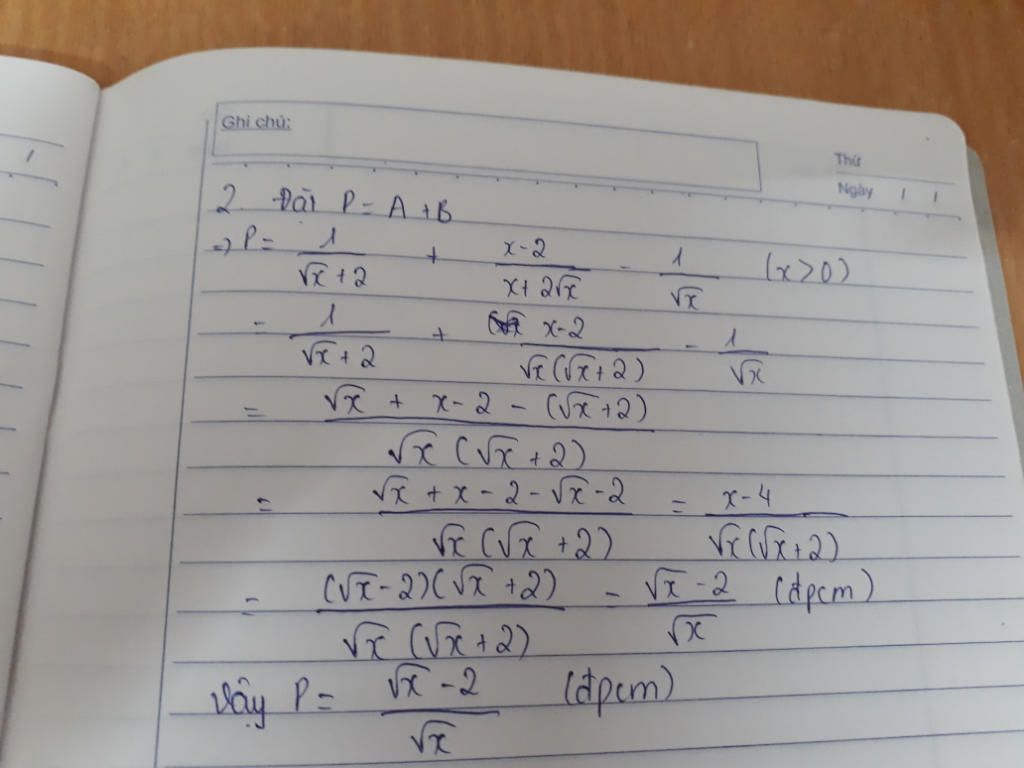 Ghi chú:
Thứ
Ngày / /
2. Đặt P = A + B
=> P = 1/(√x + 2) + (x-2)/(x + 2√x) - 1/√x (x > 0)
= 1/(√x + 2) + (x-2)/(√x(√x+2)) - 1/√x
= (√x + x - 2 - (√x+2))/(√x (√x + 2))
= (√x + x - 2 - √x - 2)/(√x (√x + 2)) = (x-4)/(√x(√x+2))
= ((√x-2)(√x+2))/(√x (√x+2)) = (√x - 2)/√x (đpcm)
Vậy P = (√x - 2)/√x (đpcm)